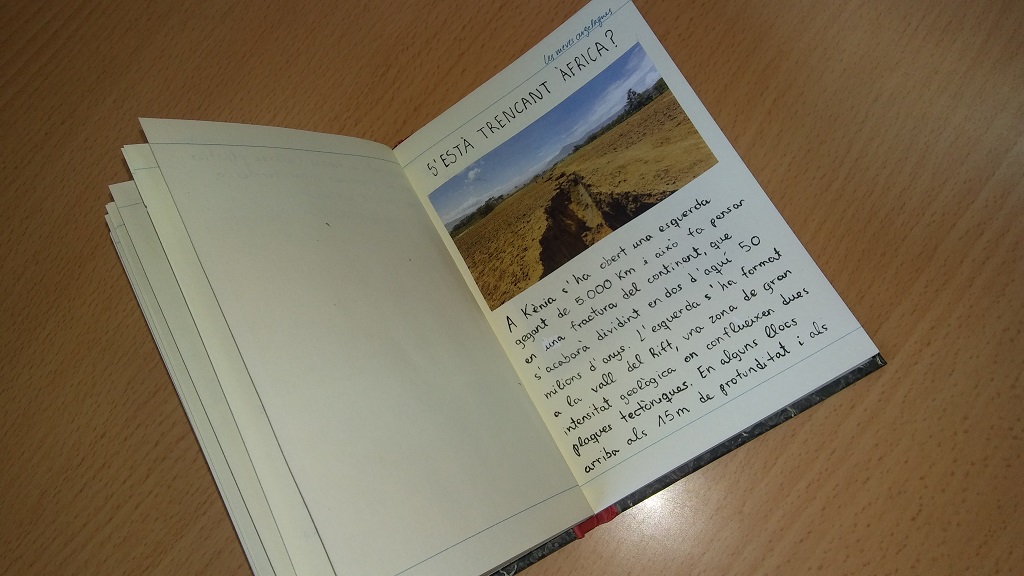 Les meves
S'ESTÀ TRENCANT ÀFRICA?
A Kènia s'ha obert una esquerda
gegant de 5.000 Km i això fa pensar
en una fractura del continent, que
s'acabarà dividint en dos d'aquí 50
milions d'anys. L'esquerda s'ha format
a la vall del Rift, una zona de gran
intensitat geològica en conflueixen dues
plaques tectòniques. En alguns llocs
arriba als 15m de profunditat i als